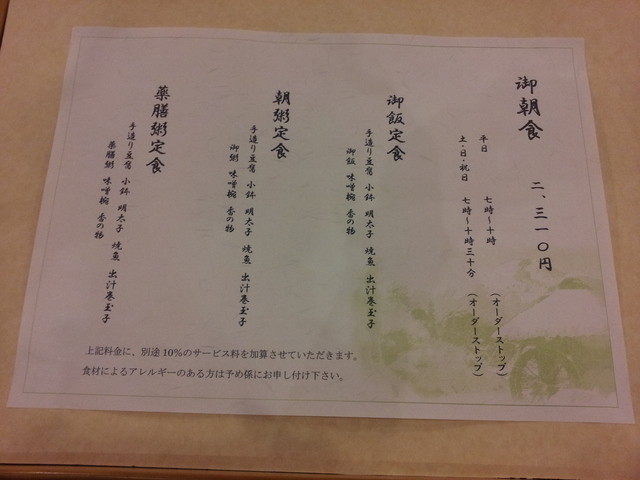 御朝食 二、三一〇円
平日 七時～十時 (オーダーストップ)
土・日・祝日 七時～十時三十分 (オーダーストップ)
御飯定食
手造り豆腐 小鉢 明太子 焼魚 出汁巻玉子
御飯 味噌椀 香の物
朝粥定食
手造り豆腐 小鉢 明太子 焼魚 出汁巻玉子
御粥 味噌椀 香の物
薬膳粥定食
手造り豆腐 小鉢 明太子 焼魚 出汁巻玉子
薬膳粥 味噌椀 香の物
上記料金に、別途10%のサービス料を加算させていただきます。
食材によるアレルギーのある方は予め係にお申し付け下さい。